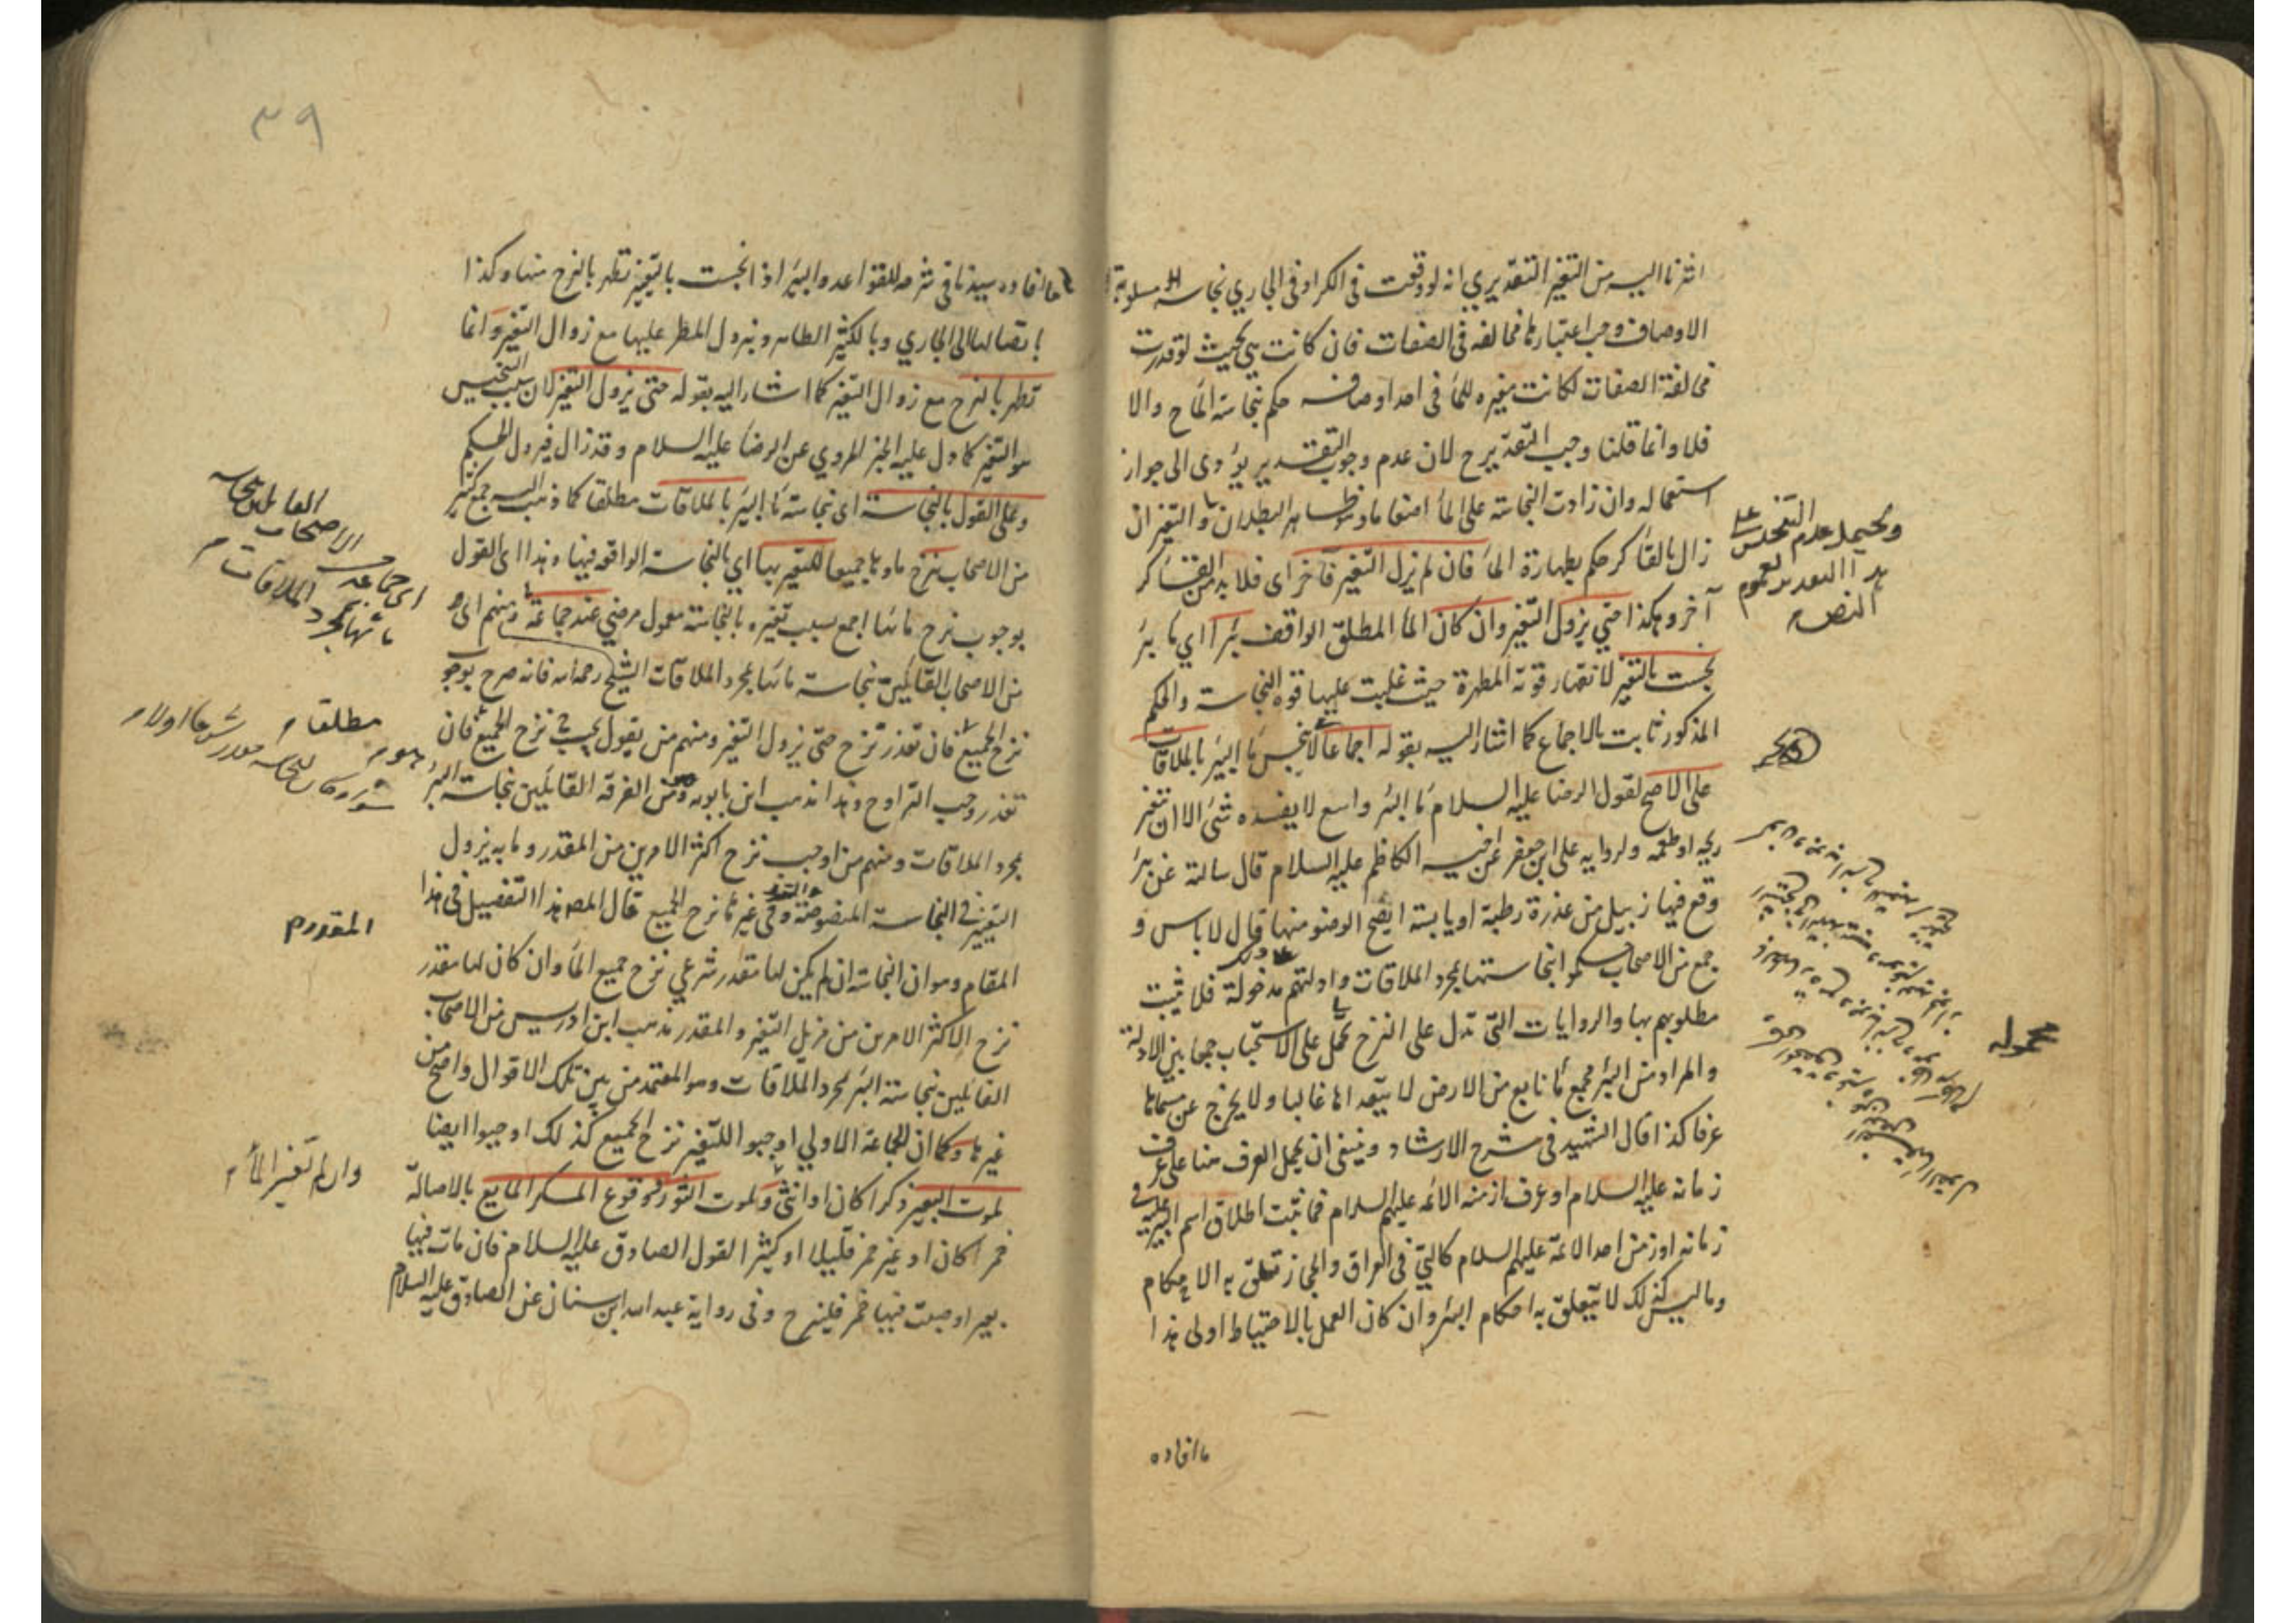 اشرنا اليه من التغير التقديري انه لو وقعت في الكر او في الجاري نجاسة مسلوبة
الاوصاف وجب اعتبارها مخالفه في الصفات فان كانت هي بحيث لو قدرت
مخالفة الصفات لكانت مغيره للماء في احد اوصافه حكم بنجاسة الماء ح والا
فلا وانما قلنا وجب التقدير ح لان عدم وجوب التقدير يؤدى الى جواز
استعماله وان زادت النجاسة على الماء اضعافا وهو ظاهر البطلان والتغير ان
زال بالقاء كر حكم بطهارة الماء فان لم يزل التغير فآخر اى فلا بد من القاء كر
آخر وهكذا حتى يزول التغير وان كان الماء المطلق الواقف بئرا اي ماء بئر
نجست بالتغير لانقهار قوته المطهرة حيث غلبت عليها قوة النجاسة والحكم
المذكور ثابت بالاجماع كما اشار اليه بقوله اجماعا لا ينجس ماء البئر بالملاقات
على الاصح لقول الرضا عليه السلام ماء البئر واسع لا يفسده شئ الا ان تغير
ريحه او طعمه ولروايه على ابن جعفر عن اخيه الكاظم عليه السلام قال سالته عن بئر
وقع فيها زبيل من عذرة رطبة او يابسة ايصح الوضو منها قال لا باس و
جمع من الاصحاب حكموا بنجاستها بمجرد الملاقات وادلتهم مدخولة فلا يثبت
مطلوبهم بها والروايات التي تدل على النزح تحمل على الاستحباب جمعا بين الادلة
والمراد من البئر مجمع ماء نابع من الارض لا يتعداها غالبا ولا يخرج عن مسماها
عرفا كذا قال الشهيد في شرح الارشاد وينبغى ان يحمل العرف هنا على عرف
زمانه عليه السلام او عرف ازمنه الائمه عليهم السلام فما ثبت اطلاق اسم البئر عليه في
زمانه او زمن احد الائمة عليهم السلام كالتي في العراق والحجاز تتعلق به الاحكام
وما ليس كذلك لا يتعلق به احكام البئر وان كان العمل بالاحتياط اولى هذا
ويحتمل عدم التنجس على
هذا التقدير لعموم
النص
محموله
ما افاده
٣٩
ما افاده سيدنا في شرحه للقواعد والبئر اذا نجست بالتغير تطهر بالنزح منها وكذا
باتصالها الى الجاري وبالكثير الطاهر وبنزول المطر عليها مع زوال التغير وانما
تطهر بالنزح مع زوال التغير كما اشار اليه بقوله حتى يزول التغير لان سبب التنجيس
هو التغير كما دل عليه الخبر المروي عن الرضا عليه السلام وقد زال فيزول الحكم
وعلى القول بالنجاسة اى نجاسة ماء البئر بالملاقات مطلقا كما ذهب اليه جمع كثير
من الاصحاب ينزح ماوها جميعا للتغير بها اي بالنجاسة الواقعه فيها وهذا اى القول
بوجوب نزح مائها اجمع بسبب تغيره بالنجاسة معمول مرضي عند جماعة ومنهم اى
من الاصحاب القائلين بنجاسة مائها بمجرد الملاقات الشيخ رحمه الله فانه صرح بوجوب
نزح الجميع فان تعذر نزح حتى يزول التغير ومنهم من يقول يجب نزح الجميع فان
تعذر وجب التراوح وهذا مذهب ابن بابويه ومن الفرقه القائلين بنجاسة البئر
بمجرد الملاقات ومنهم من اوجب نزح اكثر الامرين من المقدر وما به يزول
التغير في النجاسة المنصوصة وفي غيرها نزح الجميع قال المص هذا التفصيل في هذا
المقام وهو ان النجاسة ان لم يكن لها مقدر شرعي نزح جميع الماء وان كان لها مقدر
نزح الاكثر الامرين من مزيل التغير والمقدر مذهب ابن ادريس من الاصحاب
القائلين بنجاسة البئر بمجرد الملاقات وهو المعتمد من بين تلك الاقوال واصح من
غيرها وكما ان الجماعة الاولي اوجبوا للتغير نزح الجميع كذلك اوجبوا ايضا
لموت البعير ذكرا كان او انثى ولموت الثور ووقوع المسكر المايع بالاصالة
خمرا كان او غير خمر قليلا او كثيرا لقول الصادق عليه السلام فان مات فيها
بعير او صبت فيها خمر فلينزح وفي رواية عبد الله ابن سنان عن الصادق عليه السلام
اى جماعة من الاصحاب القائلين بنجاسة
مائها بمجرد الملاقات
مطلقا
المقدر
وان لم تغير الماء